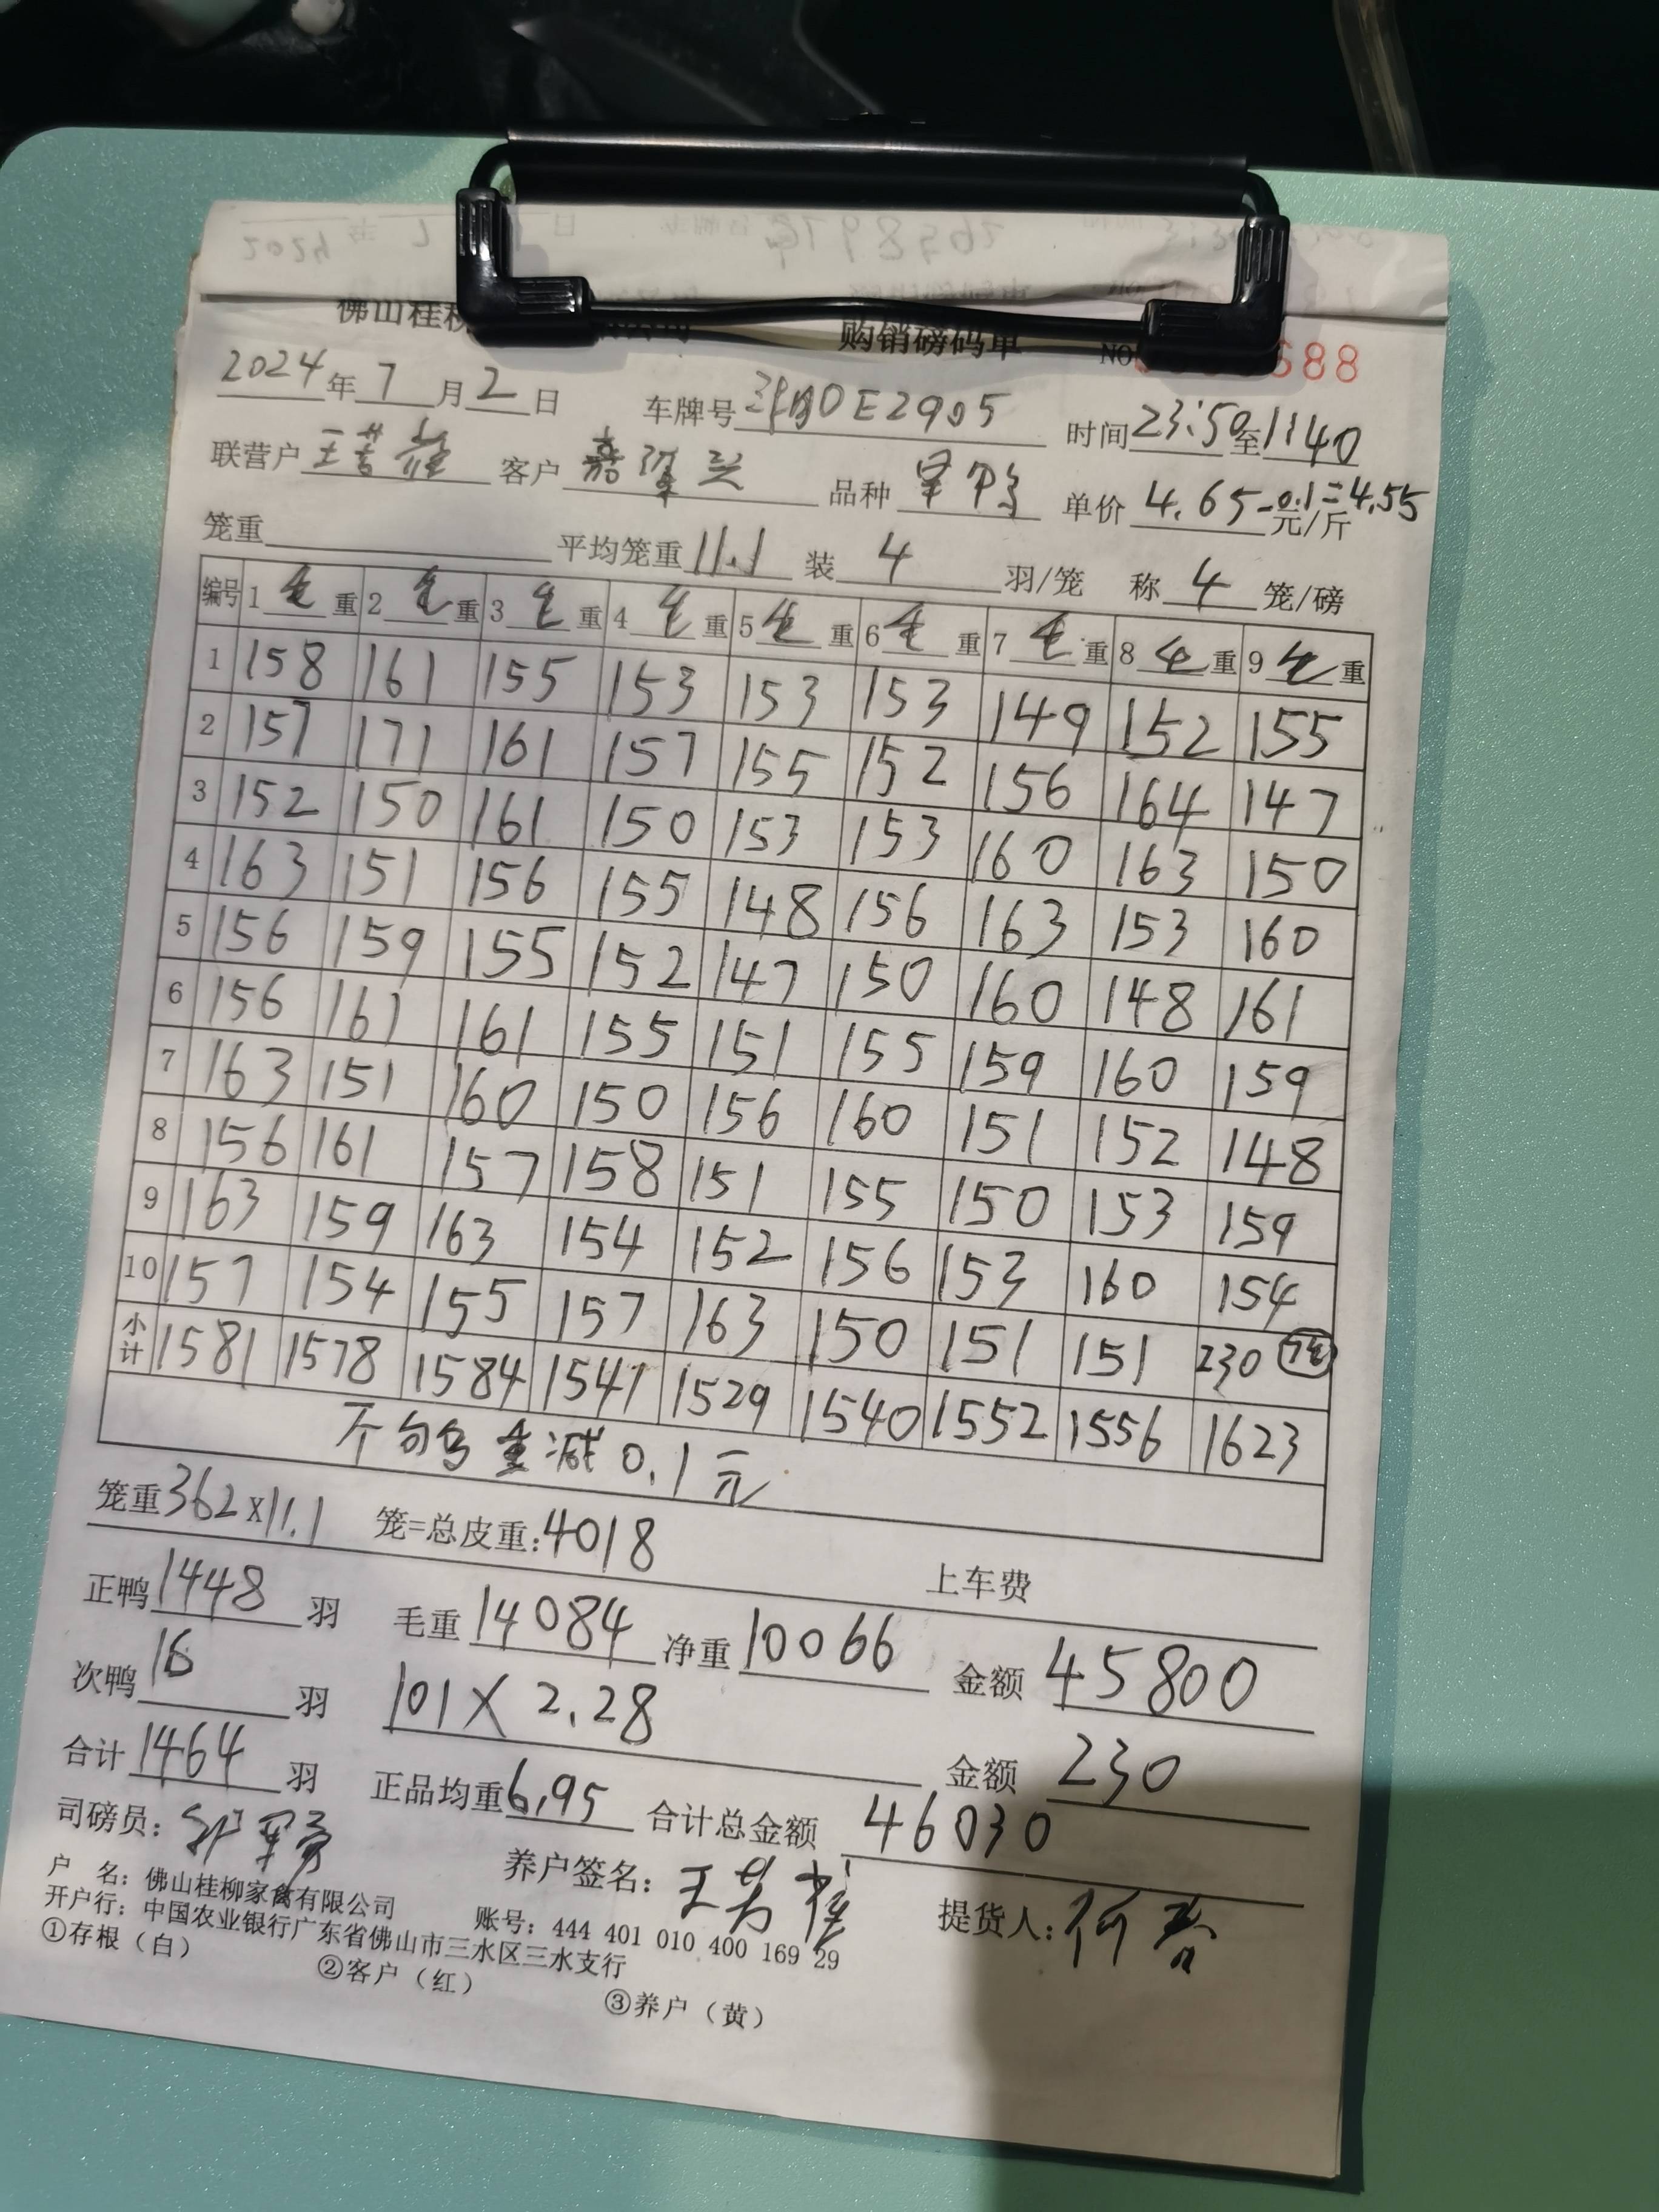 佛山桂柳 购销磅码单 NO 688
2024年7月2日 车牌号 E2905 时间23:50至1:40
联营户 客户 嘉隆兴 品种 单价4.65-0.1=4.55元/斤
笼重 平均笼重11.1 装4羽/笼 称4笼/磅
编号 1毛重 2毛重 3毛重 4毛重 5毛重 6毛重 7毛重 8毛重 9毛重
1 158 161 155 153 153 153 149 152 155
2 157 171 161 157 155 152 156 164 147
3 152 150 161 150 153 153 160 163 150
4 163 151 156 155 148 156 163 153 160
5 156 159 155 152 147 150 160 148 161
6 156 161 161 155 151 155 159 160 159
7 163 151 160 150 156 160 151 152 148
8 156 161 157 158 151 155 150 153 159
9 163 159 163 154 152 156 153 160 154
10 157 154 155 157 163 150 151 151 230
小计 1581 1578 1584 1541 1529 1540 1552 1556 1623
不 减0.1元
笼重362x11.1 笼=总皮重:4018 上车费
正鸭1448羽 毛重14084 净重10066 金额45800
次鸭16羽 101X2.28 金额230
合计1464羽 正品均重6.95 合计总金额46030
司磅员: 养户签名: 提货人:
户 名:佛山桂柳家禽有限公司 账号:444 401 010 400 169 29
开户行:中国农业银行广东省佛山市三水区三水支行
①存根(白) ②客户(红) ③养户(黄)